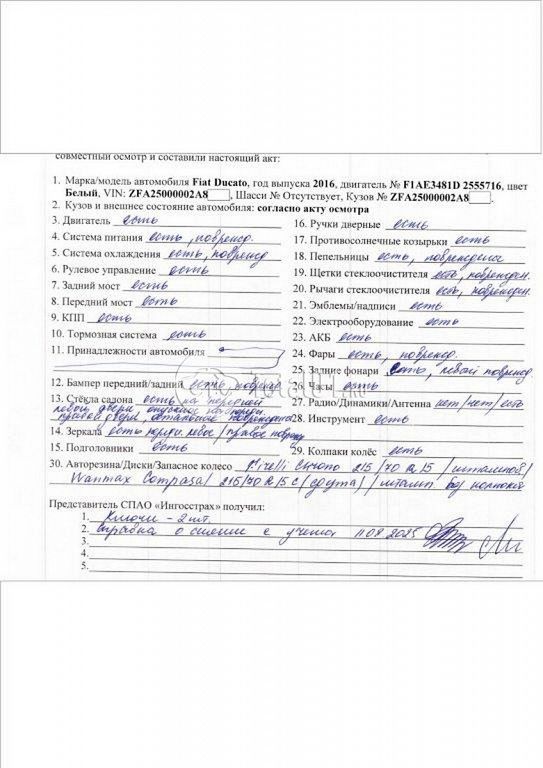 совместный осмотр и составили настоящий акт:
1. Марка/модель автомобиля Fiat Ducato, год выпуска 2016, двигатель № F1AE3481D 2555716, цвет
Белый, VIN: ZFA25000002A8, Шасси № Отсутствует, Кузов № ZFA25000002A8.
2. Кузов и внешнее состояние автомобиля: согласно акту осмотра
3. Двигатель есть
4. Система питания есть, поврежд.
5. Система охлаждения есть, поврежд
6. Рулевое управление есть
7. Задний мост есть
8. Передний мост есть
9. КПП есть
10. Тормозная система есть
11. Принадлежности автомобиля
12. Бампер передний/задний есть, поврежд
13. Стёкла салона есть на передней
левой двери,
правой двери,
14. Зеркала есть левое / правое
15. Подголовники есть
16. Ручки дверные есть
17. Противосолнечные козырьки есть
18. Пепельницы есть, повреждена
19. Щетки стеклоочистителя есть, поврежден.
20. Рычаги стеклоочистителя есть, поврежден.
21. Эмблемы/надписи есть
22. Электрооборудование есть
23. АКБ есть
24. Фары есть, поврежд.
25. Задние фонари есть, левой поврежд
26. Часы есть
27. Радио/Динамики/Антенна нет/нет/есть
28. Инструмент есть
29. Колпаки колёс есть
30. Авторезина/Диски/Запасное колесо Pirelli Chrono 215/70 R15 /штампован/
Wanmax 215/70 R15C /сдута/ /штамп.
Представитель СПАО «Ингосстрах» получил:
1. Ключи - 2 шт.
2. Справка о снятии с учета 11 09 2025
3.
4.
5.